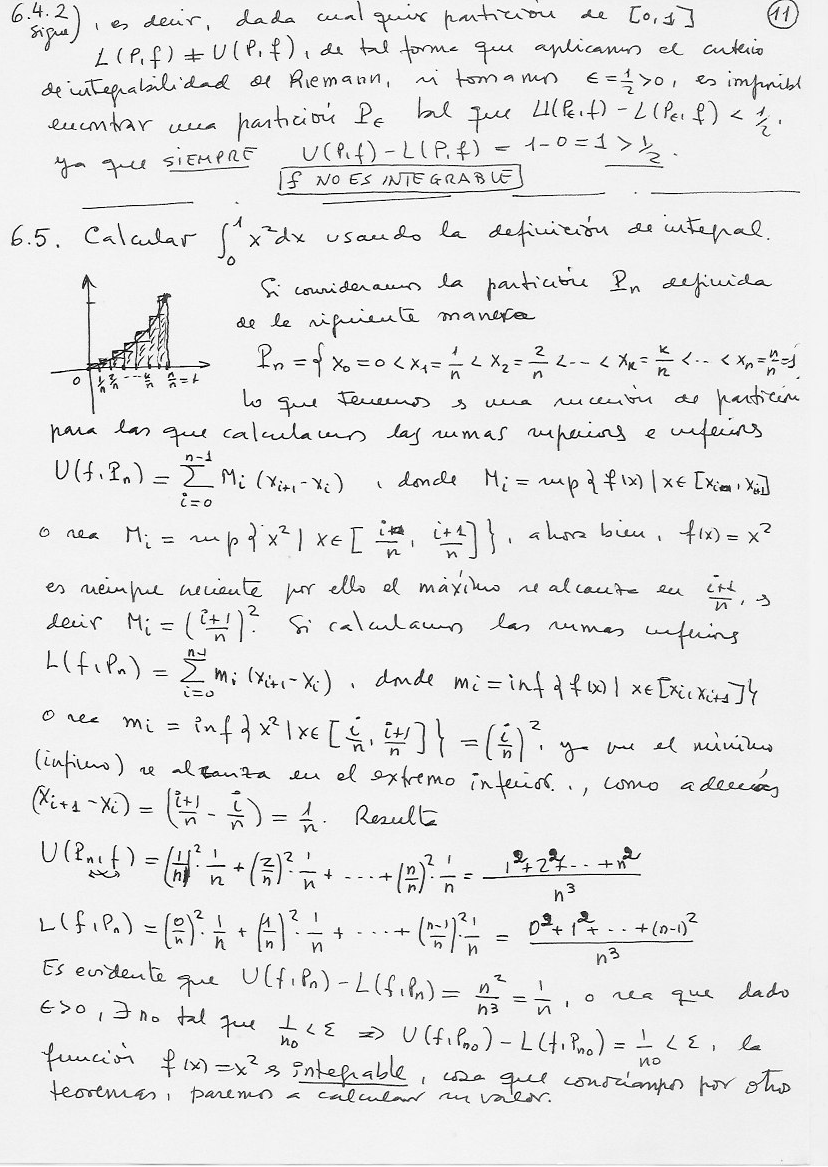 6.4.2) sigue), es decir, dada cualquier partición de [0,1] 11
L(P,f) ≠ U(P,f), de tal forma que aplicamos el criterio
de integrabilidad de Riemann, si tomamos ϵ = 1/2 > 0, es imposible
encontrar una partición Pϵ tal que U(Pϵ,f) - L(Pϵ,f) < 1/2.
ya que SIEMPRE U(P,f) - L(P,f) = 1-0 = 1 > 1/2.
f NO ES INTEGRABLE
6.5. Calcular ∫₀¹ x²dx usando la definición de integral.
Si consideramos la partición Pn definida
de la siguiente manera
Pn = { x₀ = 0 < x₁ = 1/n < x₂ = 2/n < ... < xk = k/n < ... < xn = n/n = 1
0 1/n 2/n ... k/n n/n = 1
lo que tenemos es una sucesión de partición
para las que calculamos las sumas superiores e inferiores
U(f,Pn) = Σ_{i=0}^{n-1} Mi (xi+1 - xi), donde Mi = sup { f(x) | x ∈ [xi, xi+1]
o sea Mi = sup { x² | x ∈ [ i/n, i+1/n ] }, ahora bien, f(x) = x²
es siempre creciente por ello el máximo se alcanza en i+1/n, es
decir Mi = (i+1/n)². Si calculamos las sumas inferiores
L(f,Pn) = Σ_{i=0}^{n-1} mi (xi+1 - xi), donde mi = inf { f(x) | x ∈ [xi, xi+1] }
o sea mi = inf { x² | x ∈ [ i/n, i+1/n ] } = (i/n)², ya que el mínimo
(ínfimo) se alcanza en el extremo inferior.., como además
(xi+1 - xi) = (i+1/n - i/n) = 1/n. Resulta
U(Pn,f) = (1/n)² · 1/n + (2/n)² · 1/n + .... + (n/n)² · 1/n = 1²+2²+...+n² / n³
L(f,Pn) = (0/n)² · 1/n + (1/n)² · 1/n + .... + (n-1/n)² · 1/n = 0²+1²+...+(n-1)² / n³
Es evidente que U(f,Pn) - L(f,Pn) = n²/n³ = 1/n, o sea que dado
ϵ > 0, ∃ n₀ tal que 1/n₀ < ε ⇒ U(f,Pn₀) - L(f,Pn₀) = 1/n₀ < ε, la
función f(x) = x² es integrable, cosa que conocíamos por otro
teoremas, paremos a calcular su valor.